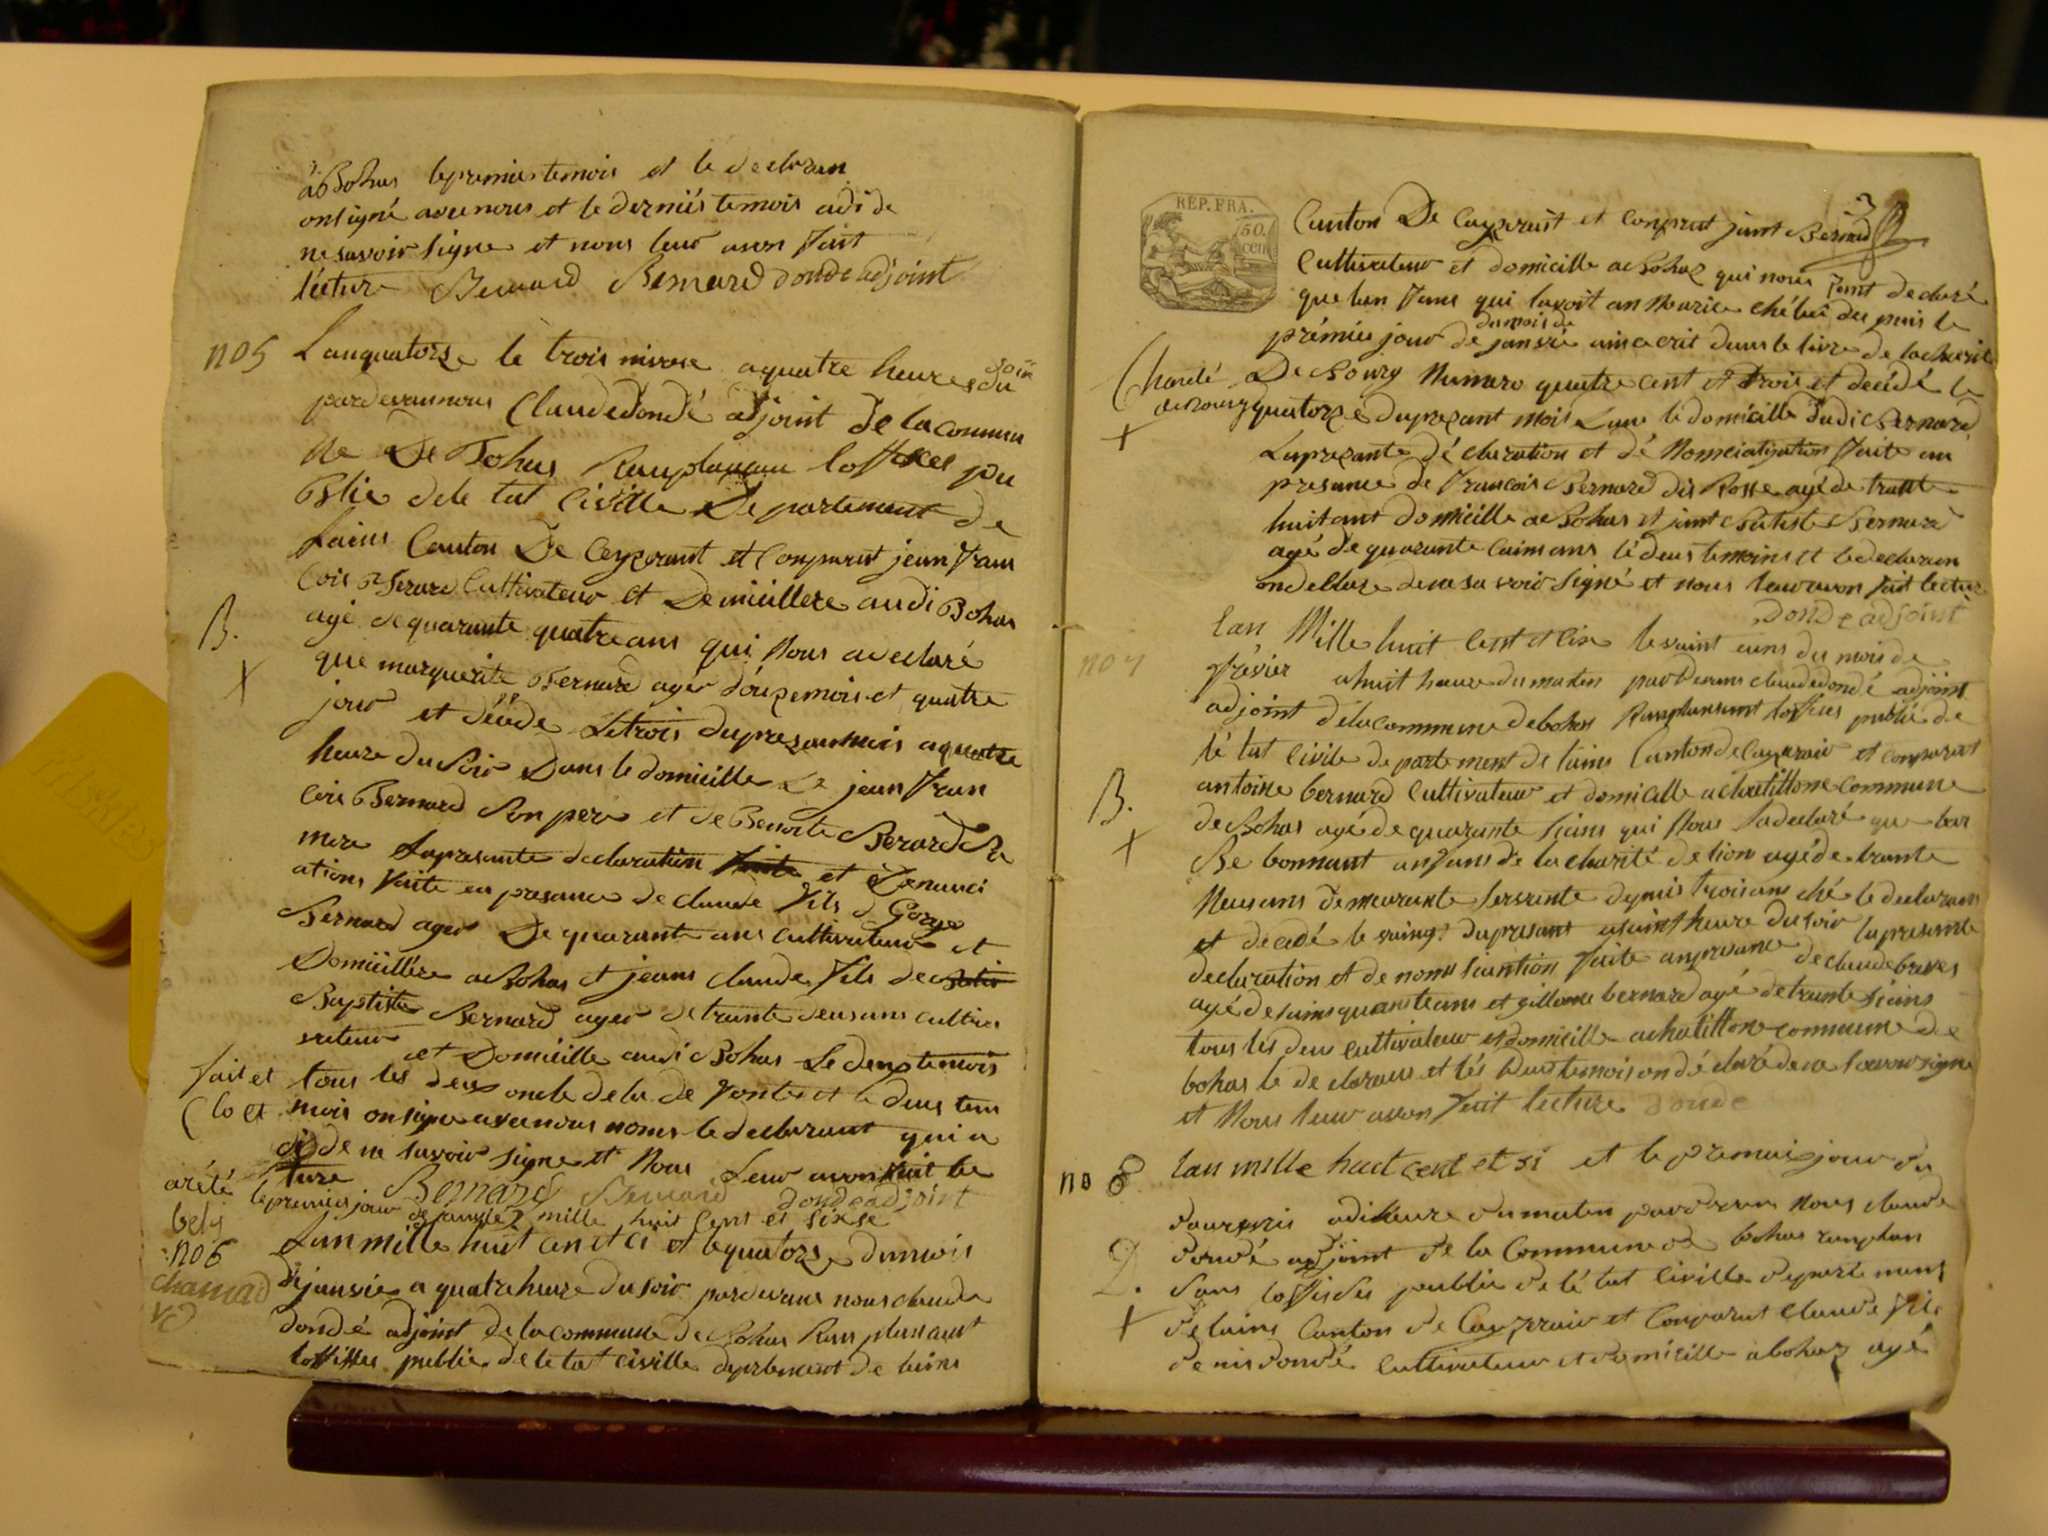 à Bohas le premier temois et le declaran
on signé avec nous et le derniés temois adi de
ne savoir signe et nous leur avon fait
lecture Bernard Bernard donde adjoint
no 5 L'anquatorse le trois nivose aquatre heures du soir
pardevannous Claude dondé adjoint de la commu
ne De Bohas Ramplasan loffices pu
Blic dele tat Civille Departement de
Lains Canton De Ceyzeraint et Conparut jean fran
cois Berard Cultivateur et Demicillere audi Bohas
agé de quarante quatre ans qui Nous a declaré
B.
que marguerite Bernard agér douze mois et quatre
X
jour et décéde Le trois du presanmois a quatre
heure du Soir Dans le domicille De jean fran
cois Bernard Son pere et de Benoite Berard Sa
mere La presante declaration et Denunci
ations faite en presance de claude fils d Gorge
Bernard ager De quarante ans cultivateur et
Domicillére a Bohas et jeans claude fils de
Baptiste Bernard ager de trante deus ans cultiva
vateur et Domicille audi Bohas Le deus temois
fait et tous les deus oncle de la de fonte et le deus tem
Clo et mois on signe avec nous nomes le declarant qui a
di de ne savoir signe et Nous Leur avon fait lec
arété ture Bernard Bernard donde adjoint
le premier jour de janvie mille huit cens et sixse
no 6 Lan mille huit cen et ci et le quatorze du mois
chanad de janvie a quatre heure du soir pardevans nous claude
dondé adjoint de la commune de Bohas Ramplansant
loffisses publie de le tat civille departement de lains
3
REP. FRA.
50. cen
Canton De Cayzeraint et Conparut jant Bernard
Cultivateur et domicille a Bohaz qui nous fent declaré
que lun fans qui lavoit an Nourice ché lui dee puis le
prémier jour du mois de de janvié ainscerit dans le livre de la charité
Charité De Bourg Numero quatre cent et trois et decédé le
de Bourg quatorzé du prezant mois Dans le domicille Dudi Bernard
X
La prezante déclaration et dé Nonciatization faite an
presance de francois Bernard dis Rosse agé de trante
huit ant domicille a Bohas et jant Batiste Bernard
agé de quarante cains ans lé deus temoins et le declaran
on declare de ne sa voir signé et nous leur avon fait lecture
donde adjoint
no 7 lan Mille huit cent et six le vaint eune du mois de
févier a huit heure du maten par Devans claude dondé adjoint
adjoint de la commune de bohas Ramplansant loffices publié de
lé tat civile departement de lains Canton de Cayzeraint et conparut
antoine bernard Cultivateur et domicille a chatillone commune
B.
de Bohas agé de quarante siains qui Nous Sa declaré que bar
X
Be bonnant anfans de la charité de lion agé de trante
Neus ans demeurante servante depuis trois ans ché le declarans
et decedé le vaing du presant a saint heure du soir la presante
declaration et de nonssiantion faite an presance de claude brives
agé de sainsquante ans et gillome bernard agé de trante siains
tous lés deus cultivateur et domicille a chatillone commune de
bohas le declarans et lés deus temois on déclaré de ne savoir signe
et Nous leur avon fait lecture donde
no 8 lan mille huit cent et si et le premié jour du
adi heure du maten par devan nous claude
dondé adjoint de la Commune de bohas ranplan
D.
sans loffisses publie de lé tat civille departement
X
de lains Canton de Cayzerain et Conparut claude fils
denis dondé cultivateur et domicille a bohaz agé